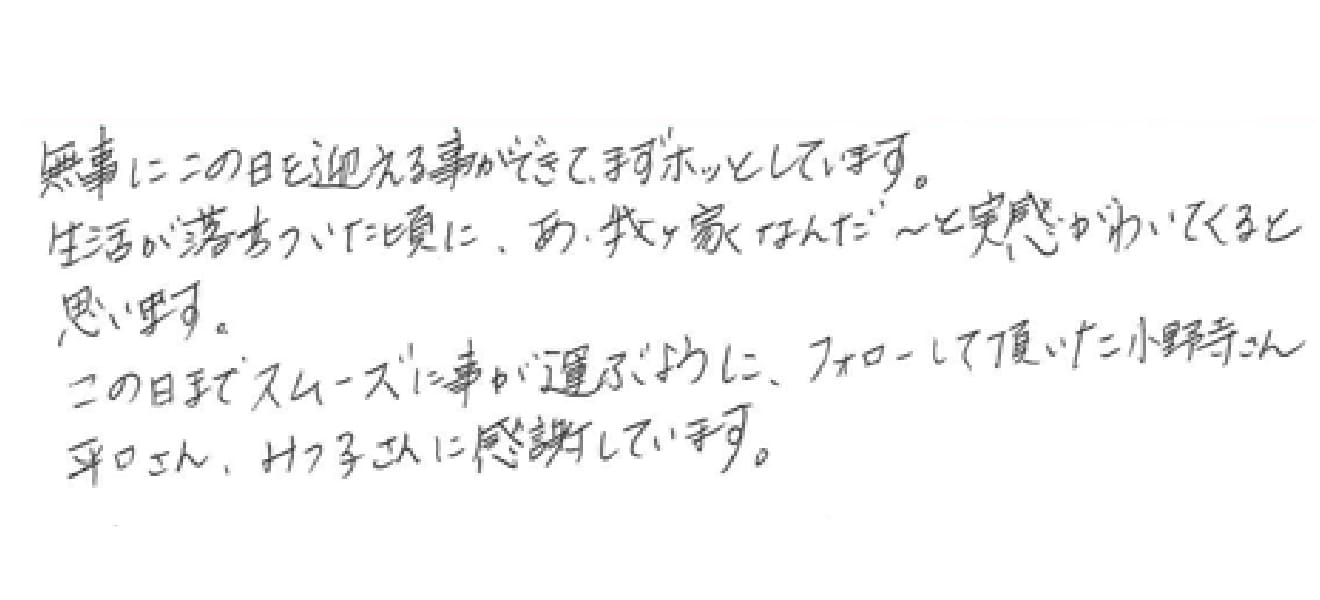 無事にこの日を迎える事ができて、まずホッとしています。
生活が落ちついた頃に、あ、我ヶ家なんだ～と実感がわいてくると
思います。
この日までスムーズに事が運ぶように、フォローして頂いた小野寺さん
平口さん、みつ子さんに感謝しています。